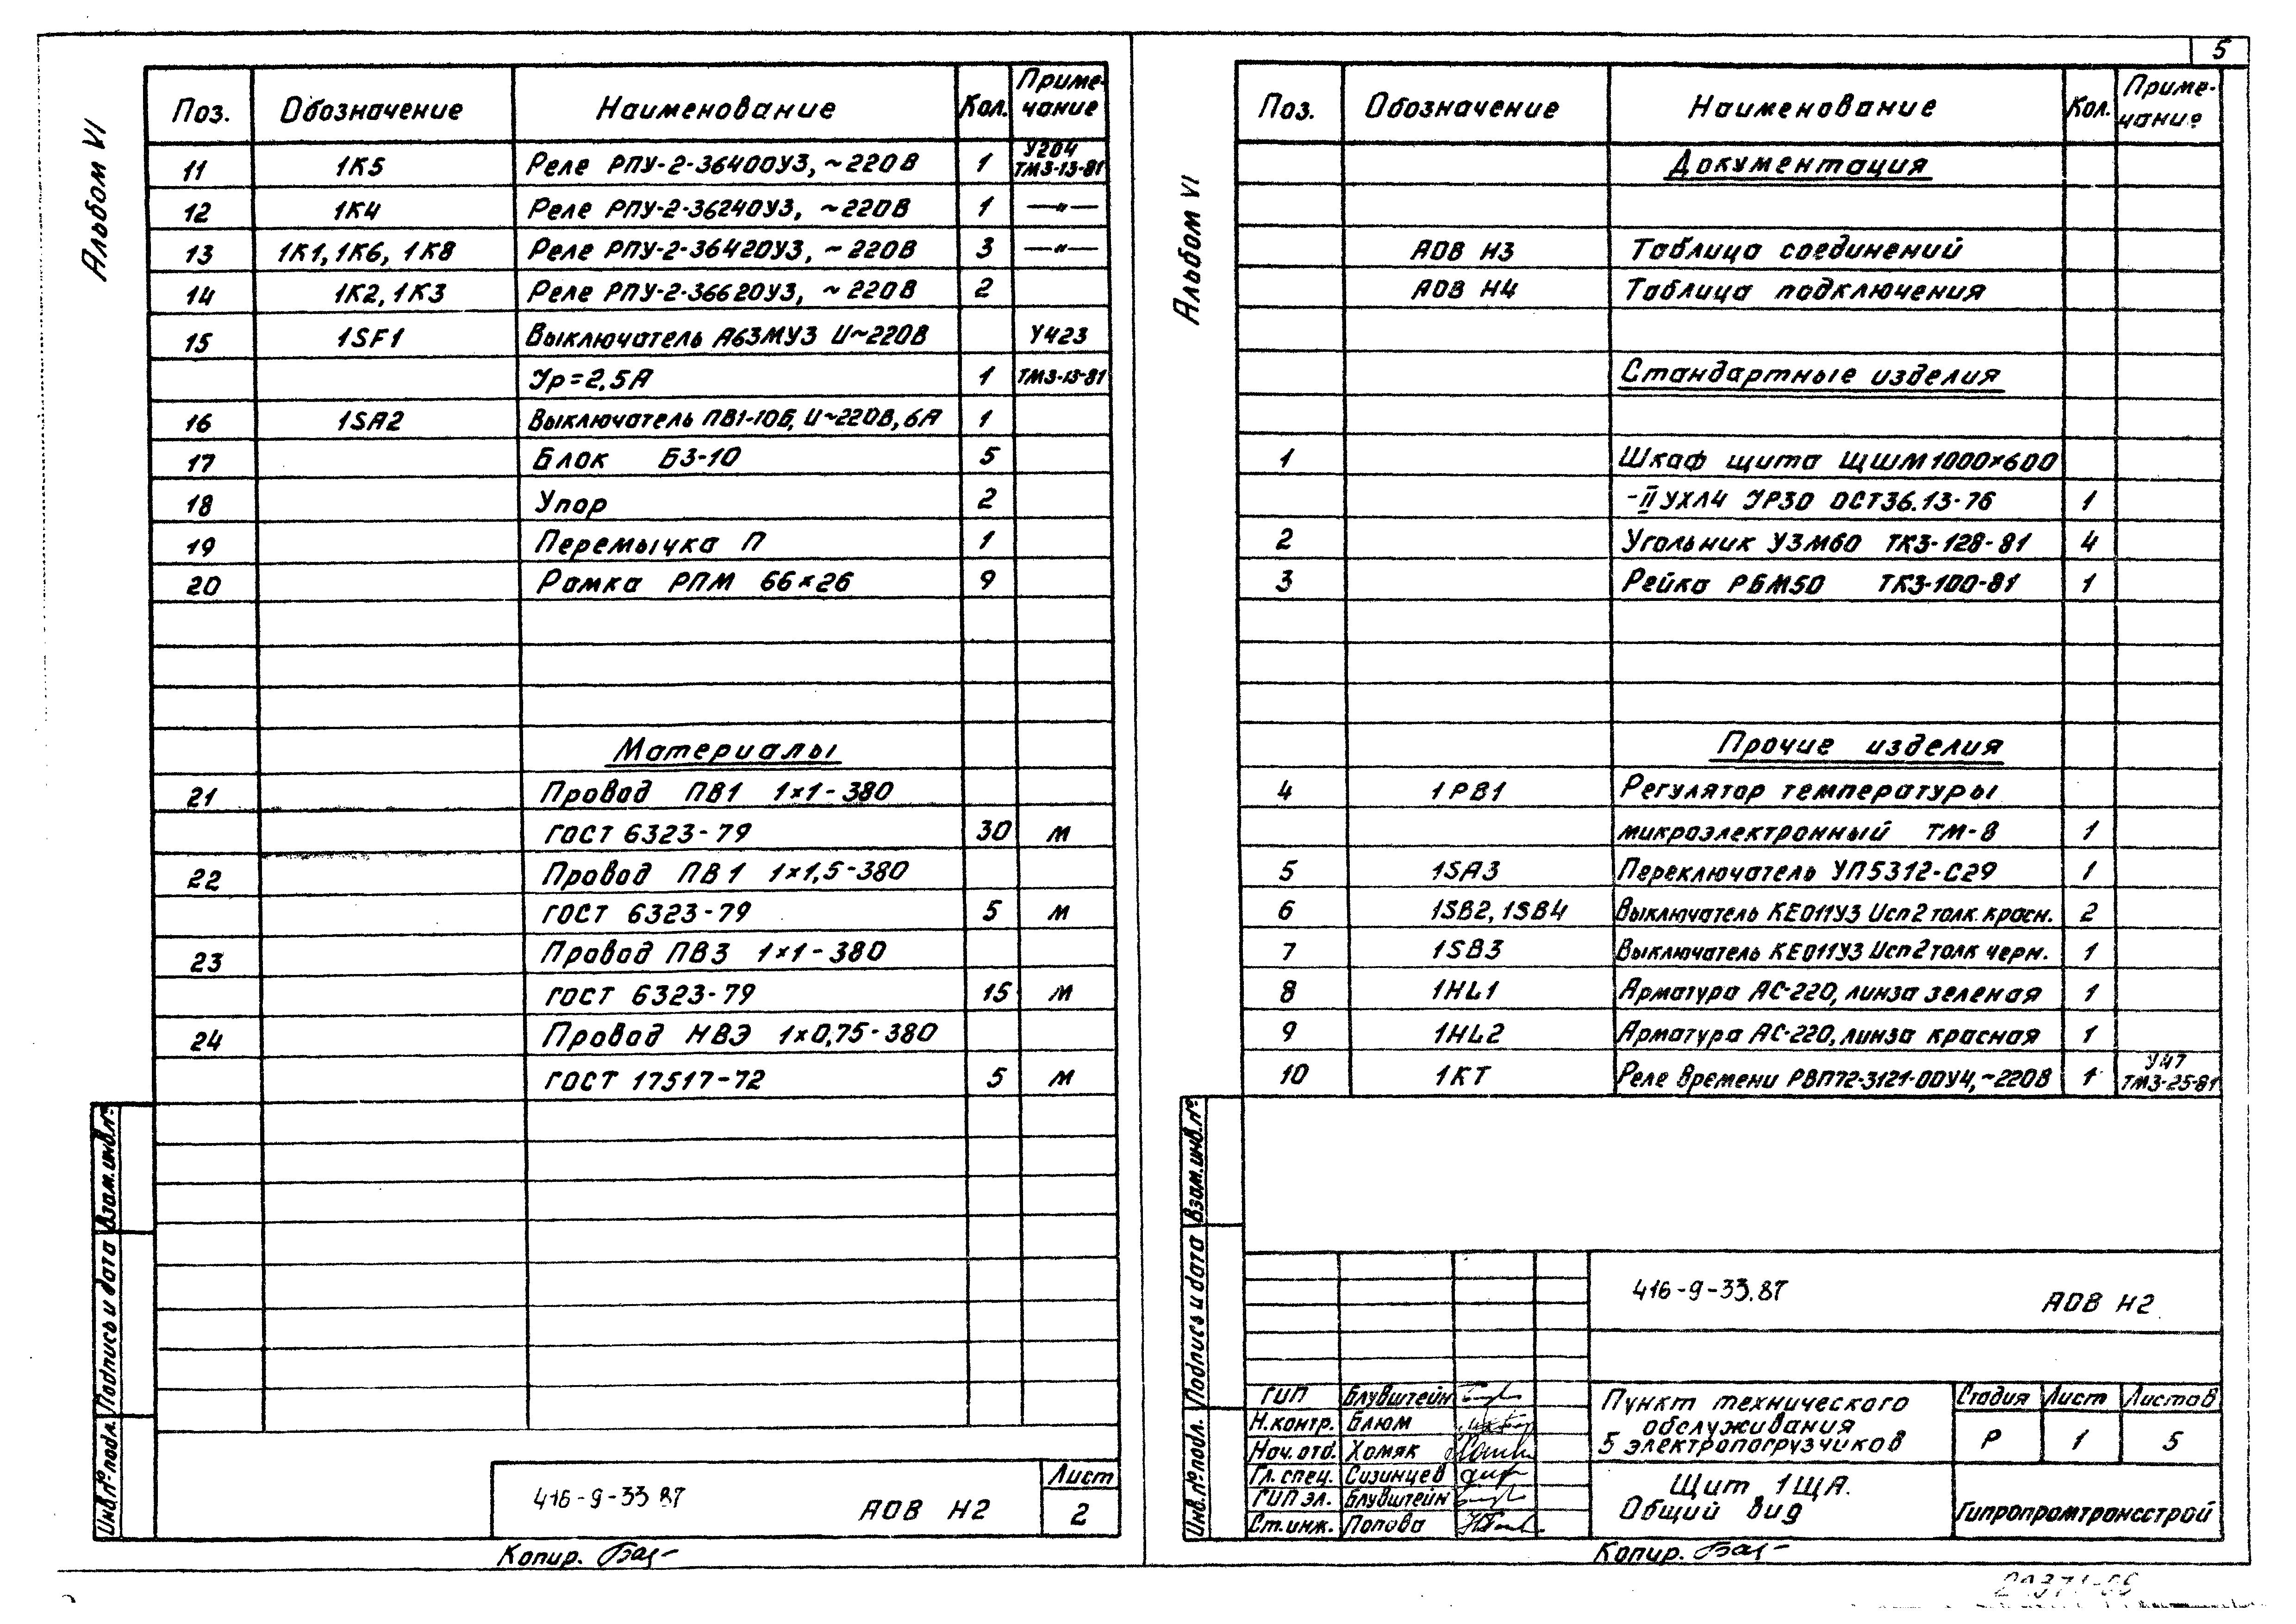 Альбом VI
Поз. Обозначение Наименование Кол. Приме-
чание
11 1К5 Реле РПУ-2-36400У3, ~220В 1 У204
ТМ3-13-81
12 1К4 Реле РПУ-2-36240У3, ~220В 1 —"—
13 1К1, 1К6, 1К8 Реле РПУ-2-36420У3, ~220В 3 —"—
14 1К2, 1К3 Реле РПУ-2-36620У3, ~220В 2
15 1SF1 Выключатель А63МУ3 U~220В У423
Ур=2,5А 1 ТМ3-13-81
16 1SA2 Выключатель ПВ1-10Б, U~220В, 6А 1
17 Блок Б3-10 5
18 Упор 2
19 Перемычка П 1
20 Рамка РПМ 66×26 9
Материалы
21 Провод ПВ1 1×1-380
ГОСТ 6323-79 30 м
22 Провод ПВ1 1×1,5-380
ГОСТ 6323-79 5 м
23 Провод ПВ3 1×1-380
ГОСТ 6323-79 15 м
24 Провод НВЭ 1×0,75-380
ГОСТ 17517-72 5 м
Взам.инв.№
Подпись и дата
Инв.№ подл.
416-9-33.87 АОВ Н2
Лист
2
Копир.
5
Альбом VI
Поз. Обозначение Наименование Кол. Приме-
чание
Документация
АОВ Н3 Таблица соединений
АОВ Н4 Таблица подключения
Стандартные изделия
1 Шкаф щита ЩШМ 1000×600
-II УХЛ4 УР30 ОСТ36.13-76 1
2 Угольник У3М60 ТК3-128-81 4
3 Рейка Р6М50 ТК3-100-81 1
Прочие изделия
4 1РВ1 Регулятор температуры
микроэлектронный ТМ-8 1
5 1SA3 Переключатель УП5312-С29 1
6 1SB2, 1SB4 Выключатель КЕ011У3 Исп 2 толк. красн. 2
7 1SB3 Выключатель КЕ011У3 Исп 2 толк черн. 1
8 1HL1 Арматура АС-220, линза зеленая 1
9 1HL2 Арматура АС-220, линза красная 1
10 1КТ Реле времени РВП72-3121-00У4, ~220В 1 У47
ТМ3-25-81
Взам.инв.№
Подпись и дата
Инв.№ подл.
416-9-33.87 АОВ Н2
ГИП Блувштейн
Н.контр. Блюм
Нач.отд. Хомяк
Гл.спец. Сизинцев
ГИП эл. Блувштейн
Ст.инж. Попова
Пункт технического
обслуживания
5 электропогрузчиков
Стадия Лист Листов
Р 1 5
Щит 1ЩА.
Общий вид
Гипропромтрансстрой
Копир.